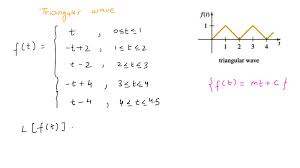 Triangular wave
f(t) = { t , 0≤t≤1
-t+2 , 1≤t≤2
t-2 , 2≤t≤3
-t+4 , 3≤t≤4
t-4 , 4≤t≤45
L[f(t)].
f(t)
1
1 2 3 4 t
triangular wave
{f(t) = mt+c}